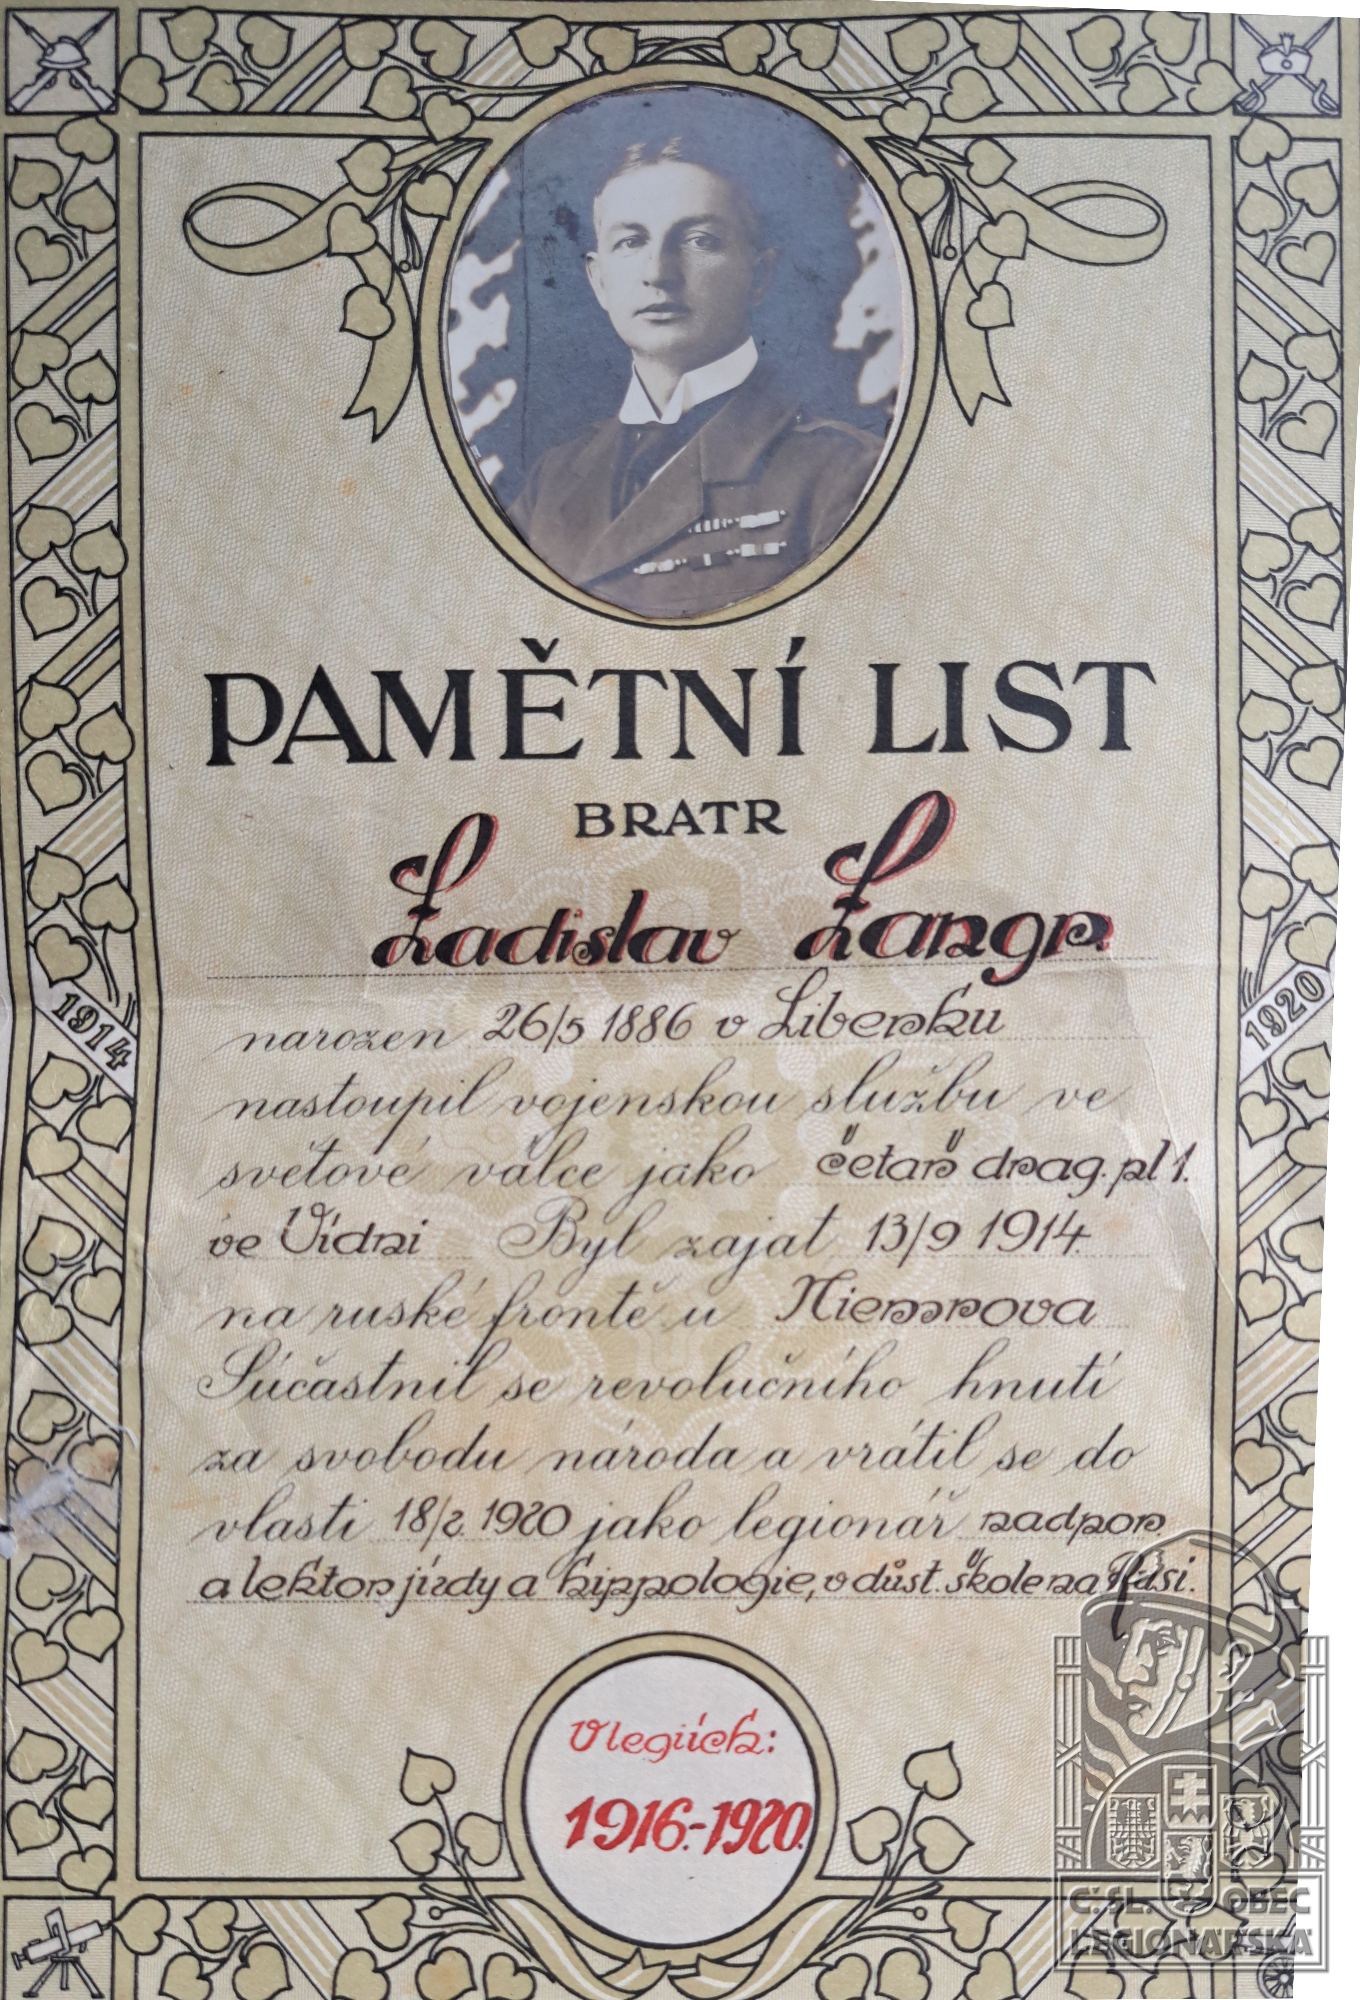 PAMĚTNÍ LIST
BRATR
Ladislav Langr.
narozen 26/5 1886 v Libenku
nastoupil vojenskou službu ve
světové válce jako četař drag. pl 1.
ve Vídni Byl zajat 13/9 1914.
na ruské frontě u Niemirova
Súčastnil se revolučního hnutí
za svobodu národa a vrátil se do
vlasti 18/2. 1920 jako legionář nadpor.
a lektor jízdy a hippologie, v důst. škole na Rusi.
1914
1920
V legiích:
1916.-1920.
Č.SL. OBEC
LEGIONÁŘSKÁ